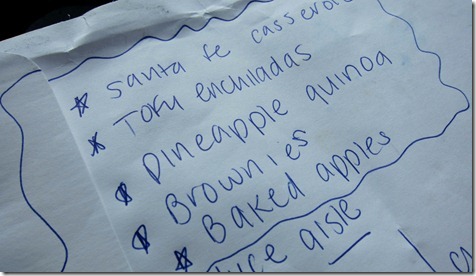 santa fe casserole
Tofu enchiladas
pineapple quinoa
Brownies
Baked apples
aisle